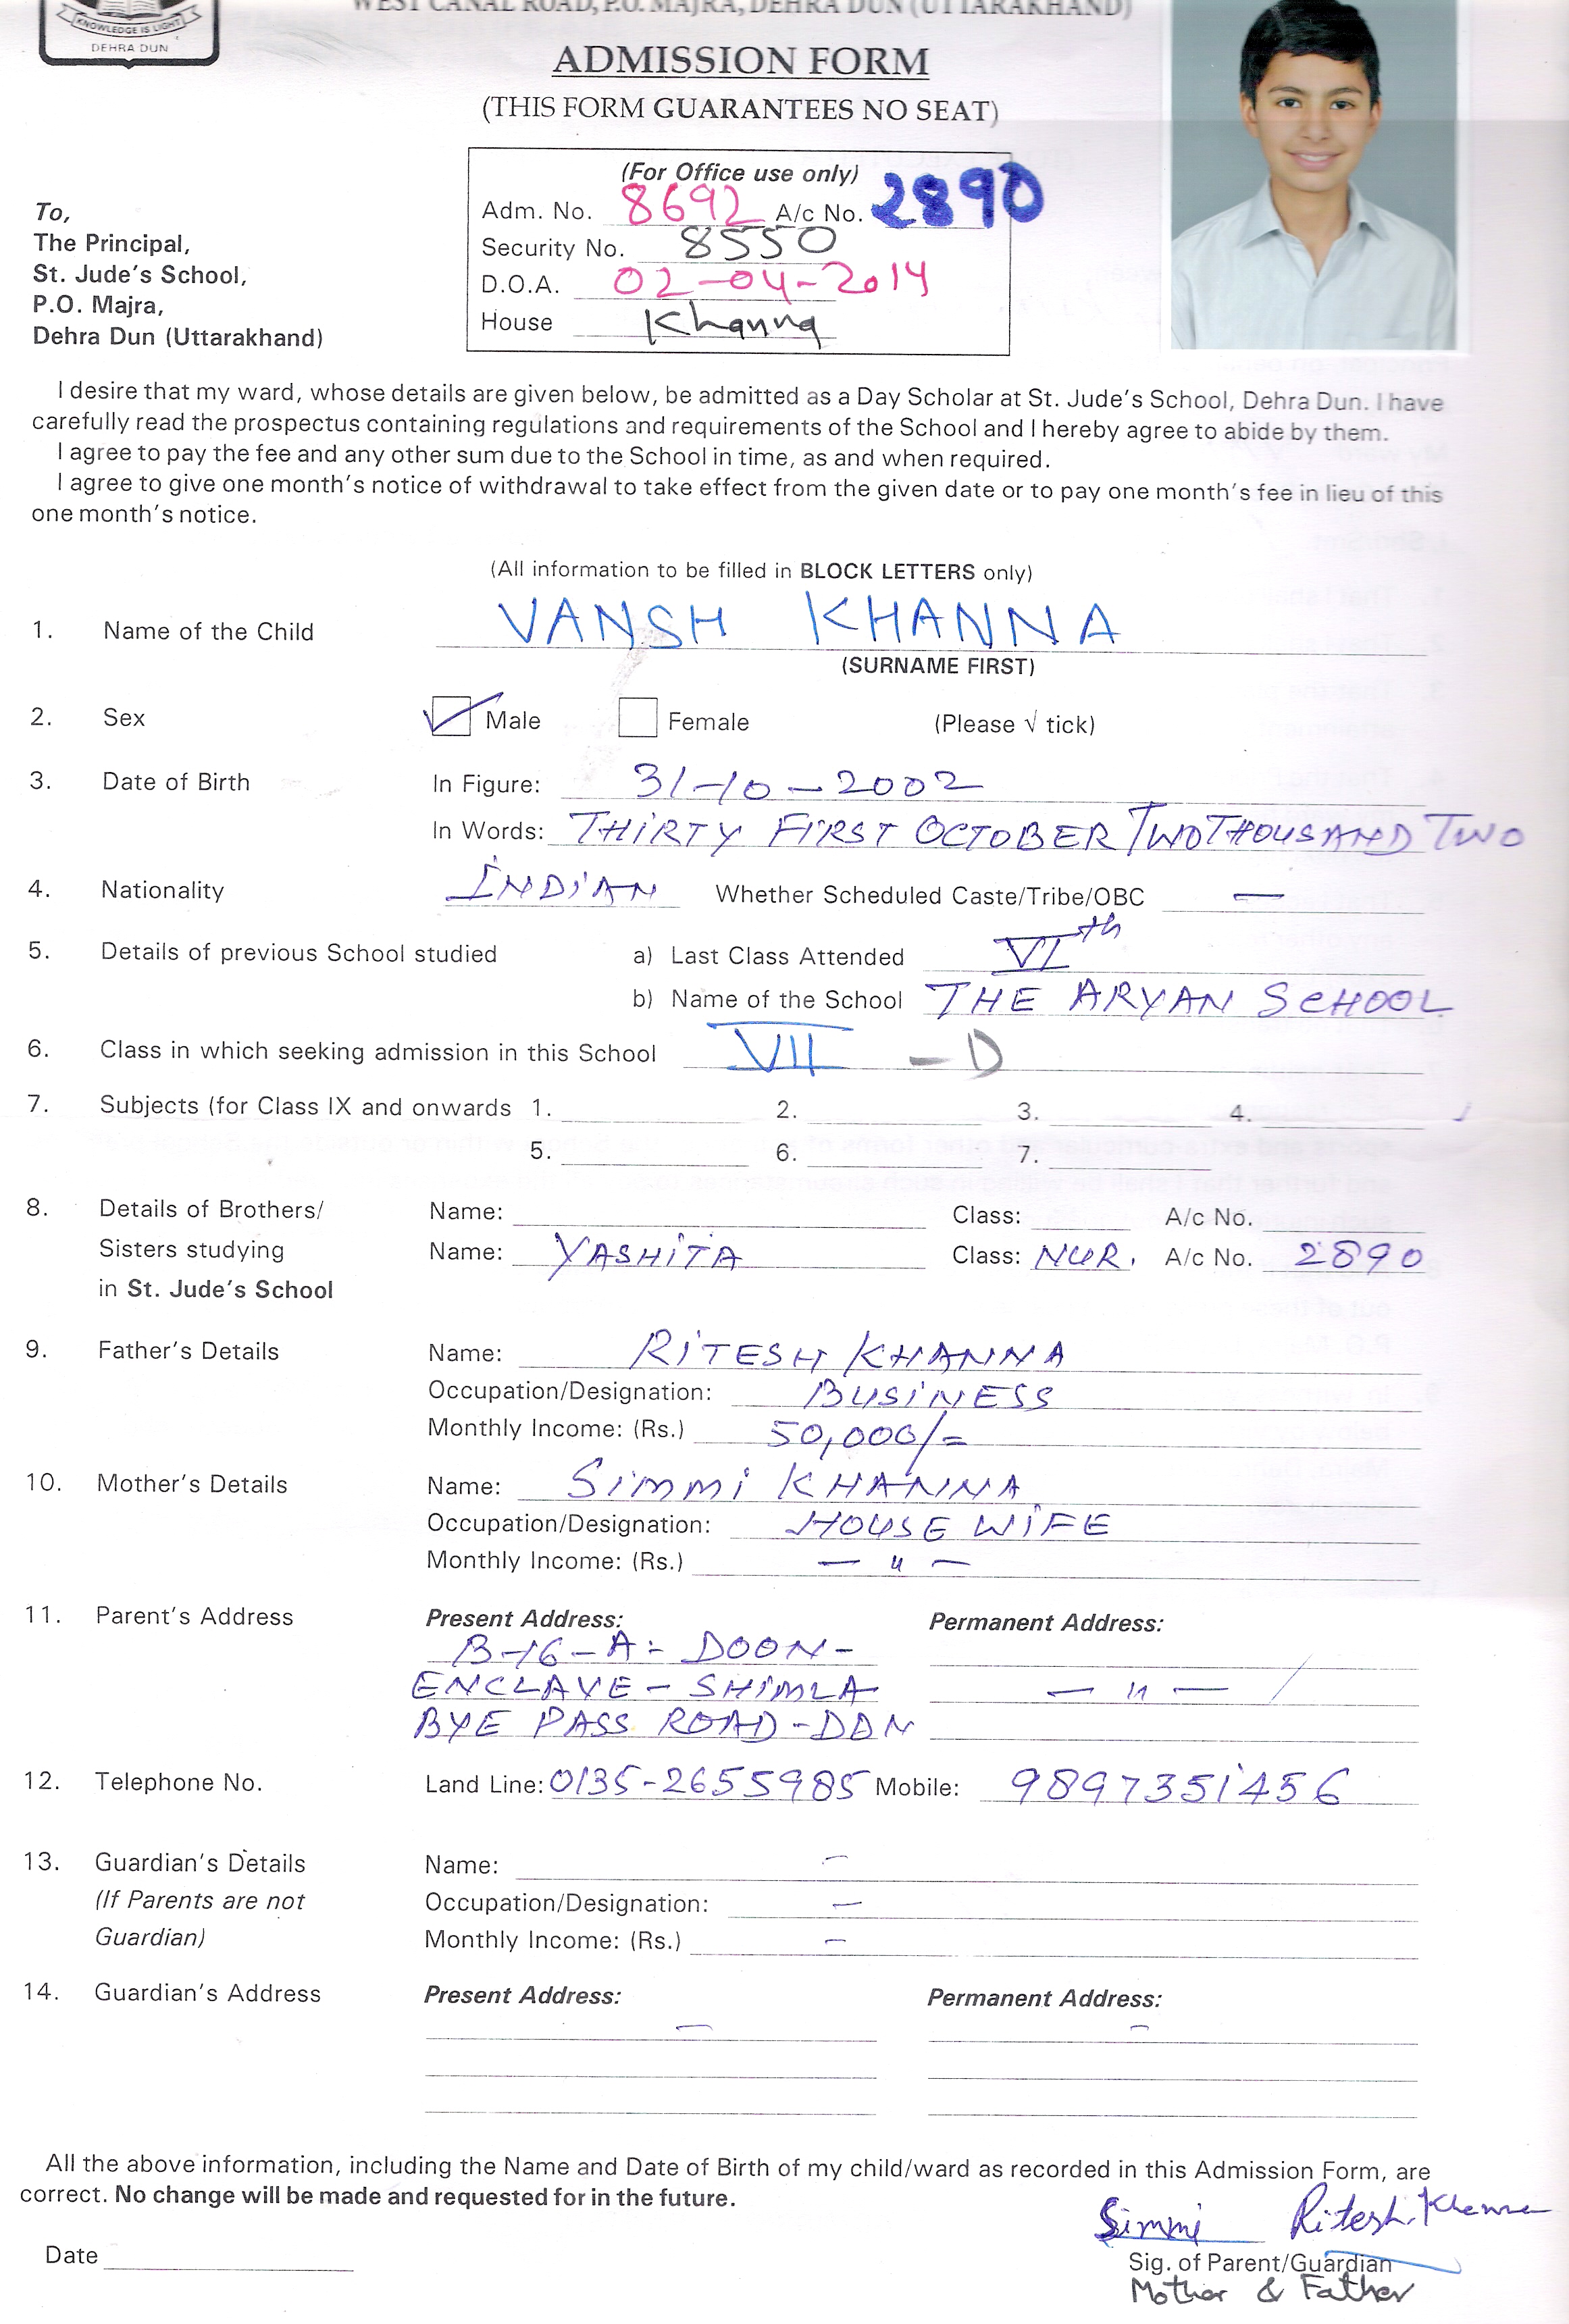 KNOWLEDGE IS LIGHT
DEHRA DUN
WEST CANAL ROAD, P.O. MAJRA, DEHRA DUN (UTTARAKHAND)
ADMISSION FORM
(THIS FORM GUARANTEES NO SEAT)
(For Office use only)
Adm. No. 8692 A/c No. 2890
Security No. 8550
D.O.A. 02-04-2014
House Khanna
To,
The Principal,
St. Jude's School,
P.O. Majra,
Dehra Dun (Uttarakhand)
I desire that my ward, whose details are given below, be admitted as a Day Scholar at St. Jude's School, Dehra Dun. I have
carefully read the prospectus containing regulations and requirements of the School and I hereby agree to abide by them.
I agree to pay the fee and any other sum due to the School in time, as and when required.
I agree to give one month's notice of withdrawal to take effect from the given date or to pay one month's fee in lieu of this
one month's notice.
(All information to be filled in BLOCK LETTERS only)
1. Name of the Child VANSH KHANNA
(SURNAME FIRST)
2. Sex Male Female (Please √ tick)
3. Date of Birth In Figure: 31-10-2002
In Words: THIRTY FIRST OCTOBER TWO THOUSAND TWO
4. Nationality INDIAN Whether Scheduled Caste/Tribe/OBC —
5. Details of previous School studied a) Last Class Attended VIth
b) Name of the School THE ARYAN SCHOOL
6. Class in which seeking admission in this School VII - D
7. Subjects (for Class IX and onwards 1. 2. 3. 4.
5. 6. 7.
8. Details of Brothers/ Name: Class: A/c No.
Sisters studying Name: YASHITA Class: NUR. A/c No. 2890
in St. Jude's School
9. Father's Details Name: RITESH KHANNA
Occupation/Designation: BUSINESS
Monthly Income: (Rs.) 50,000/=
10. Mother's Details Name: SIMMI KHANNA
Occupation/Designation: HOUSE WIFE
Monthly Income: (Rs.) — " —
11. Parent's Address Present Address: Permanent Address:
B-16-A- DOON-
ENCLAVE - SHIMLA — " —
BYE PASS ROAD-DDN
12. Telephone No. Land Line: 0135-2655985 Mobile: 9897351456
13. Guardian's Details Name: —
(If Parents are not Occupation/Designation: —
Guardian) Monthly Income: (Rs.) —
14. Guardian's Address Present Address: Permanent Address:
— —
All the above information, including the Name and Date of Birth of my child/ward as recorded in this Admission Form, are
correct. No change will be made and requested for in the future.
Simmi Ritesh Khanna
Date Sig. of Parent/Guardian
Mother & Father